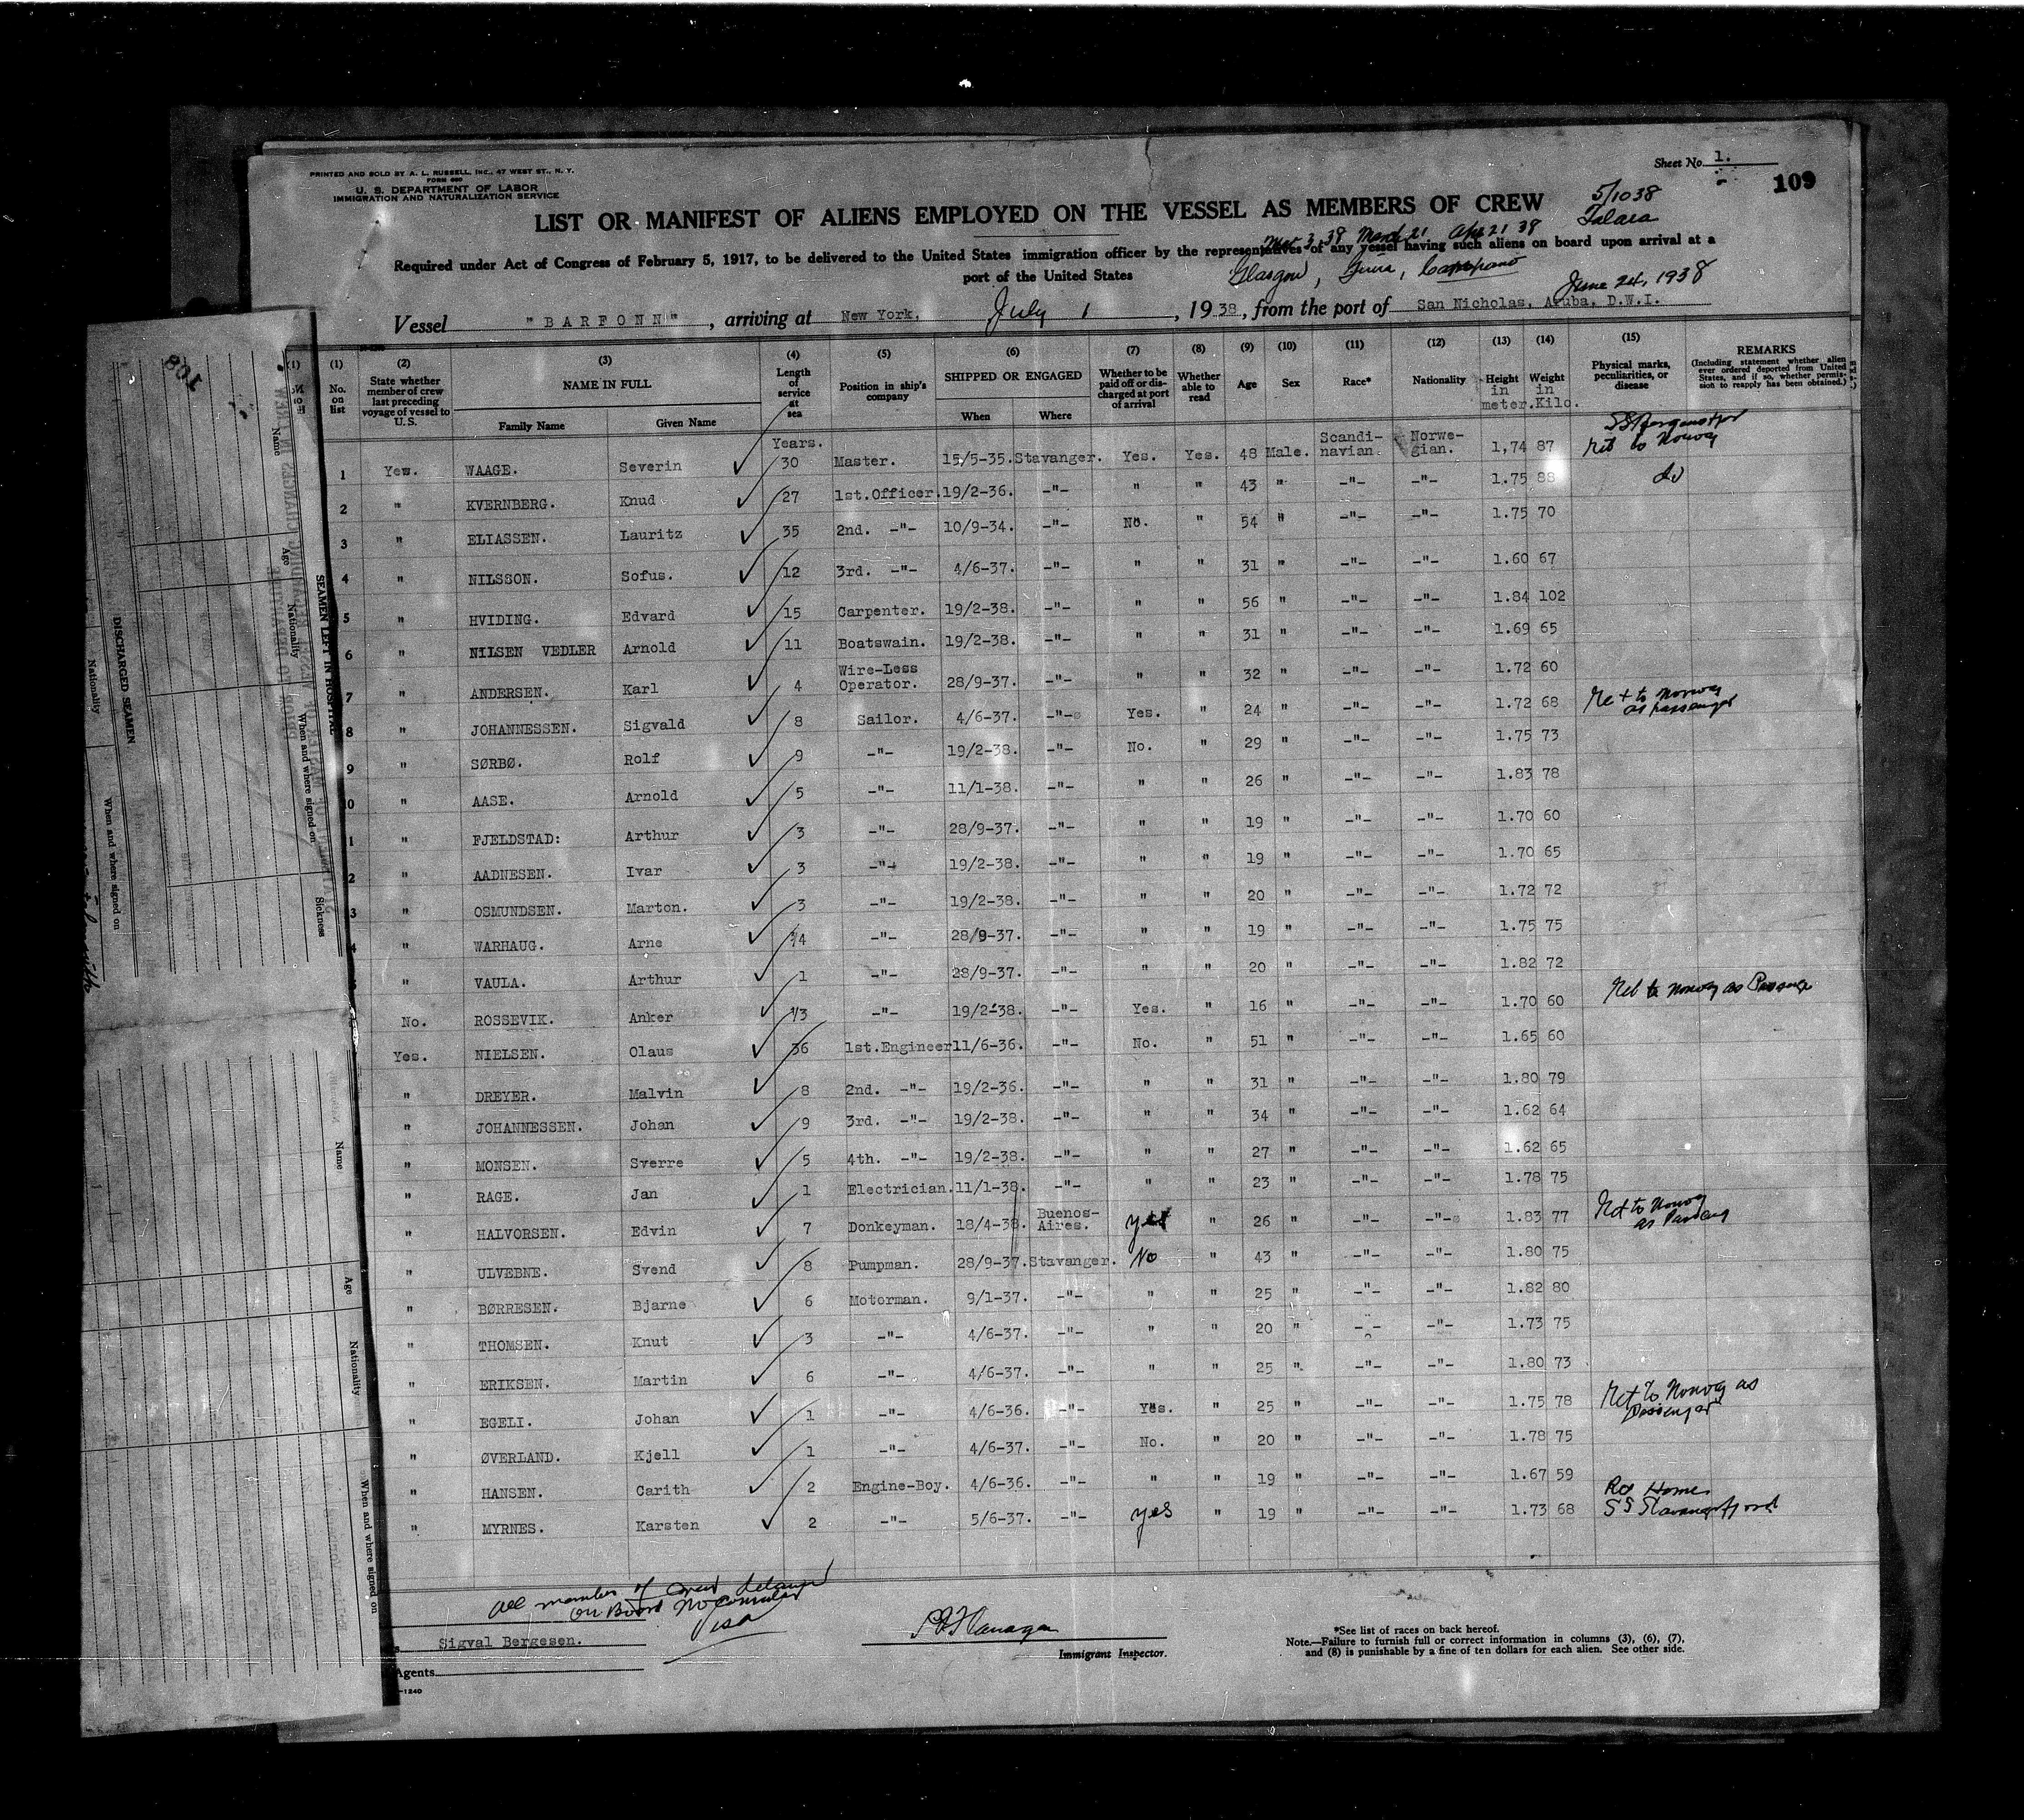 PRINTED AND SOLD BY A. L. RUSSELL, INC., 47 WEST ST., N. Y.
FORM 680
U. S. DEPARTMENT OF LABOR
IMMIGRATION AND NATURALIZATION SERVICE
Sheet No. 1.
109
5/10 38
Talara
LIST OR MANIFEST OF ALIENS EMPLOYED ON THE VESSEL AS MEMBERS OF CREW
Mar 3 38 March 21 Apr 21 38
Required under Act of Congress of February 5, 1917, to be delivered to the United States immigration officer by the representatives of any vessel having such aliens on board upon arrival at a
port of the United States
Glasgow, Guiria,
June 24, 1938
Vessel "BARFONN", arriving at New York. July 1, 1938, from the port of San Nicholas, Aruba, D.W.I.
(1) (2) (3) (4) (5) (6) (7) (8) (9) (10) (11) (12) (13) (14) (15) REMARKS
No. on list State whether member of crew last preceding voyage of vessel to U.S. NAME IN FULL Family Name Given Name Length of service at sea Position in ship's company SHIPPED OR ENGAGED When Where Whether to be paid off or discharged at port of arrival Whether able to read Age Sex Race* Nationality Height in meter. Weight in Kilo. Physical marks, peculiarities, or disease (Including statement whether alien ever ordered deported from United States, and if so, whether permission to reapply has been obtained.)
1 Yes. WAAGE. Severin Years. 30 Master. 15/5-35. Stavanger. Yes. Yes. 48 Male. Scandi-navian. Norwe-gian. 1,74 87 SS Bergensfjord Ret to Norway
2 " KVERNBERG. Knud 27 1st.Officer. 19/2-36. -"- " " 43 " -"- -"- 1.75 88 do
3 " ELIASSEN. Lauritz 35 2nd. -"- 10/9-34. -"- No. " 54 " -"- -"- 1.75 70
4 " NILSSON. Sofus. 12 3rd. -"- 4/6-37. -"- " " 31 " -"- -"- 1.60 67
5 " HVIDING. Edvard 15 Carpenter. 19/2-38. -"- " " 56 " -"- -"- 1.84 102
6 " NILSEN VEDLER Arnold 11 Boatswain. 19/2-38. -"- " " 31 " -"- -"- 1.69 65
7 " ANDERSEN. Karl 4 Wire-Less Operator. 28/9-37. -"- " " 32 " -"- -"- 1.72 60
8 " JOHANNESSEN. Sigvald 8 Sailor. 4/6-37. -"- Yes. " 24 " -"- -"- 1.72 68 Ret to Norway as passenger
9 " SØRBØ. Rolf 9 -"- 19/2-38. -"- No. " 29 " -"- -"- 1.75 73
10 " AASE. Arnold 5 -"- 11/1-38. -"- " " 26 " -"- -"- 1.83 78
1 " FJELDSTAD: Arthur 3 -"- 28/9-37. -"- " " 19 " -"- -"- 1.70 60
2 " AADNESEN. Ivar 3 -"- 19/2-38. -"- " " 19 " -"- -"- 1.70 65
3 " OSMUNDSEN. Marton. 3 -"- 19/2-38. -"- " " 20 " -"- -"- 1.72 72
4 " WARHAUG. Arne 3/4 -"- 28/9-37. -"- " " 19 " -"- -"- 1.75 75
" VAULA. Arthur 1 -"- 28/9-37. -"- " " 20 " -"- -"- 1.82 72
No. ROSSEVIK. Anker 1/3 -"- 19/2-38. -"- Yes. " 16 " -"- -"- 1.70 60 Ret to Norway as Passenger
Yes. NIELSEN. Olaus 36 1st.Engineer 11/6-36. -"- No. " 51 " -"- -"- 1.65 60
" DREYER. Malvin 8 2nd. -"- 19/2-36. -"- " " 31 " -"- -"- 1.80 79
" JOHANNESSEN. Johan 9 3rd. -"- 19/2-38. -"- " " 34 " -"- -"- 1.62 64
" MONSEN. Sverre 5 4th. -"- 19/2-38. -"- " " 27 " -"- -"- 1.62 65
" RAGE. Jan 1 Electrician. 11/1-38. -"- " " 23 " -"- -"- 1.78 75
" HALVORSEN. Edvin 7 Donkeyman. 18/4-38. Buenos-Aires. yes " 26 " -"- -"- 1.83 77 Ret to Norway as Passeng
" ULVEBNE. Svend 8 Pumpman. 28/9-37. Stavanger. No " 43 " -"- -"- 1.80 75
" BØRRESEN. Bjarne 6 Motorman. 9/1-37. -"- " " 25 " -"- -"- 1.82 80
" THOMSEN. Knut 3 -"- 4/6-37. -"- " " 20 " -"- -"- 1.73 75
" ERIKSEN. Martin 6 -"- 4/6-37. -"- " " 25 " -"- -"- 1.80 73
" EGELI. Johan 1 -"- 4/6-36. -"- Yes. " 25 " -"- -"- 1.75 78 Ret to Norway as Passenger
" ØVERLAND. Kjell 1 -"- 4/6-37. -"- No. " 20 " -"- -"- 1.78 75
" HANSEN. Carith 2 Engine-Boy. 4/6-36. -"- " " 19 " -"- -"- 1.67 59
" MYRNES. Karsten 2 -"- 5/6-37. -"- yes " 19 " -"- -"- 1.73 68 Home SS Stavangerfjord
All members of crew detained
on Board No Consular
Visa
Sigval Bergesen.
Agents
-1240
Immigrant Inspector.
*See list of races on back hereof.
Note.—Failure to furnish full or correct information in columns (3), (6), (7),
and (8) is punishable by a fine of ten dollars for each alien. See other side.
108
SEAMEN LEFT IN HOSPITAL
Name Age Nationality When and where signed on Sickness
DISCHARGED SEAMEN
Nationality When and where signed on
Name Age Nationality When and where signed on